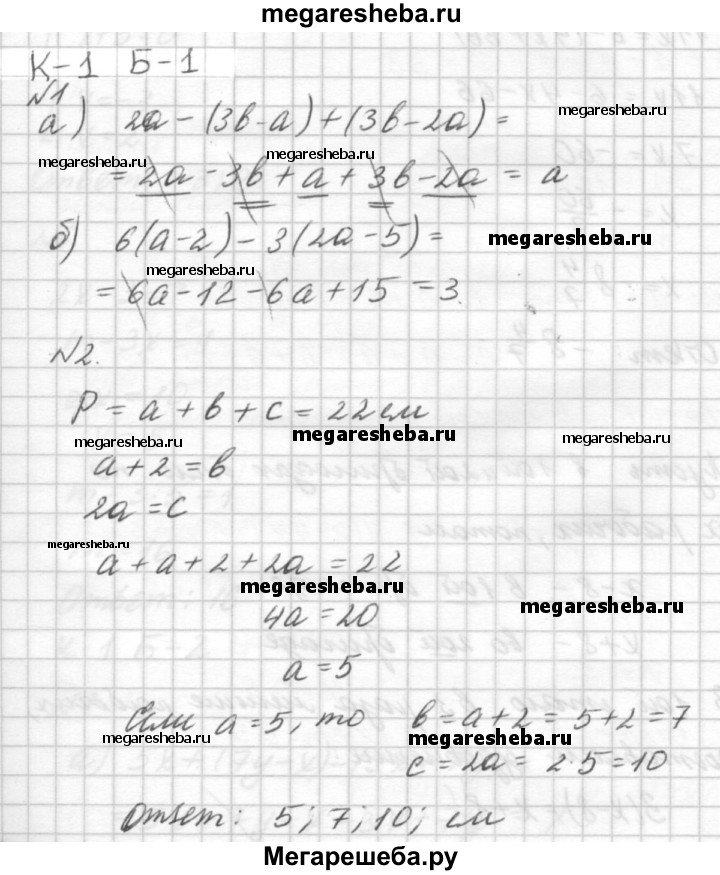 megaresheba.ru
К-1 Б-1
№1
а) 2a - (3b - a) + (3b - 2a) =
megaresheba.ru
megaresheba.ru
megaresheba.ru
= 2a - 3b + a + 3b - 2a = a
б) 6(a-2) - 3(2a-5) =
megaresheba.ru
megaresheba.ru
= 6a - 12 - 6a + 15 = 3.
№2.
P = a + b + c = 22 см
megaresheba.ru
megaresheba.ru
a + 2 = b
2a = c
megaresheba.ru
a + a + 2 + 2a = 22
megaresheba.ru
megaresheba.ru
4a = 20
a = 5
Если a = 5, то b = a + 2 = 5 + 2 = 7
megaresheba.ru
megaresheba.ru
c = 2a = 2·5 = 10
Ответ: 5; 7; 10; см
Мегарешеба.ру